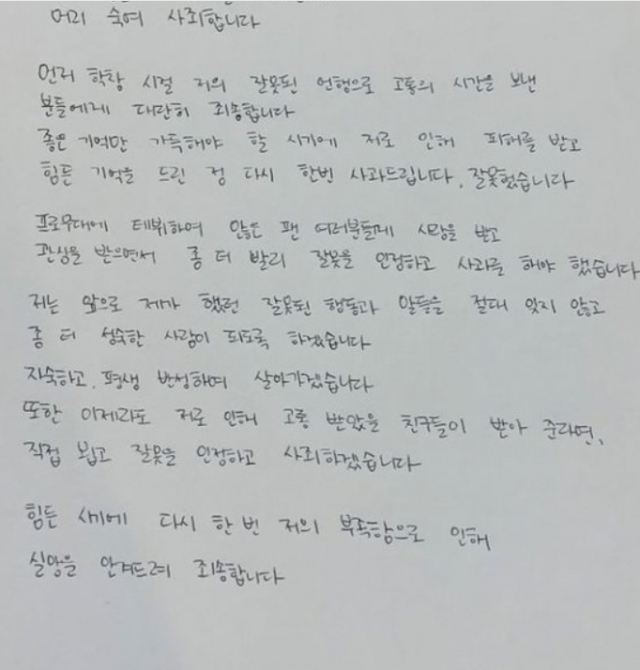 머리 숙여 사죄합니다
먼저 학창 시절 저의 잘못된 언행으로 고통의 시간을 보낸
분들에게 대단히 죄송합니다
좋은 기억만 가득해야 할 시기에 저로 인해 피해를 받고
힘든 기억을 드린 점 다시 한번 사과드립니다. 잘못했습니다
프로무대에 데뷔하여 많은 팬 여러분들께 사랑을 받고
관심을 받으면서 좀 더 빨리 잘못을 인정하고 사과를 해야 했습니다
저는 앞으로 제가 했던 잘못된 행동과 말들을 절대 잊지 않고
좀 더 성숙한 사람이 되도록 하겠습니다
자숙하고, 평생 반성하며 살아가겠습니다
또한 이제라도 저로 인해 고통 받았을 친구들이 받아 준다면,
직접 뵙고 잘못을 인정하고 사죄하겠습니다
힘든 시기에 다시 한 번 저의 부족함으로 인해
실망을 안겨드려 죄송합니다